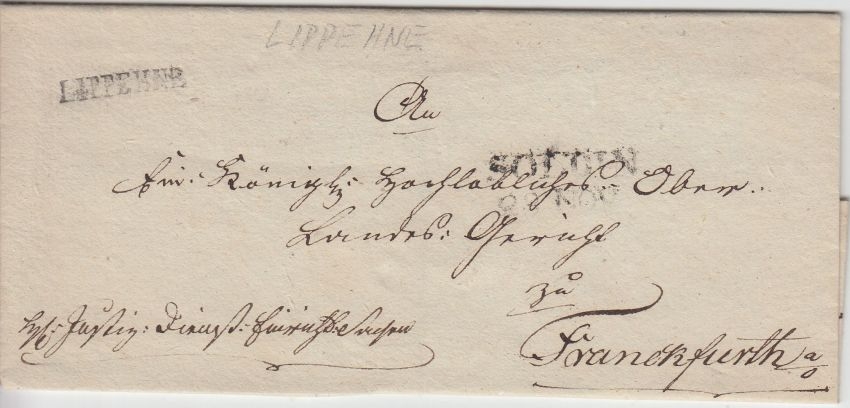 LIPPEHNE
LIPPEHNE
An
SOLDIN
Ein: Königl: Hochlöbliches Ober-
NOV
Landes: Gericht
zu
Justiz: Dienst: Einricht: Sachen
Franckfurth a/o